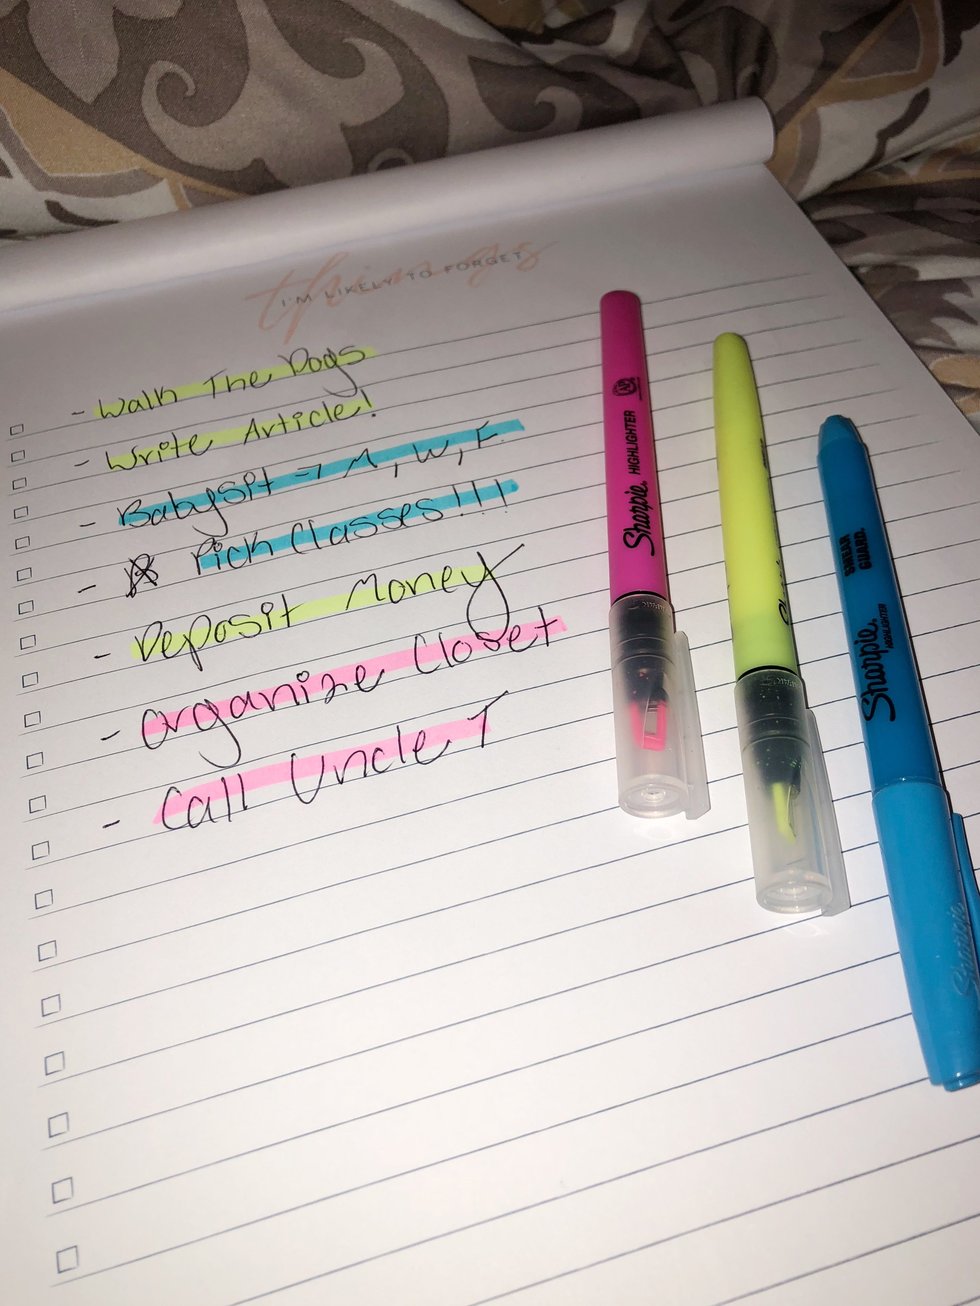 things
I'M LIKELY TO FORGET
- Walk The Dogs
- Write Article!
- Babysit → M, W, F
- Pick Classes!!!
- Deposit Money
- Organize Closet
- Call Uncle T
Sharpie. HIGHLIGHTER
AP
Sharpie. HIGHLIGHTER
SMEAR GUARD.
Sharpie